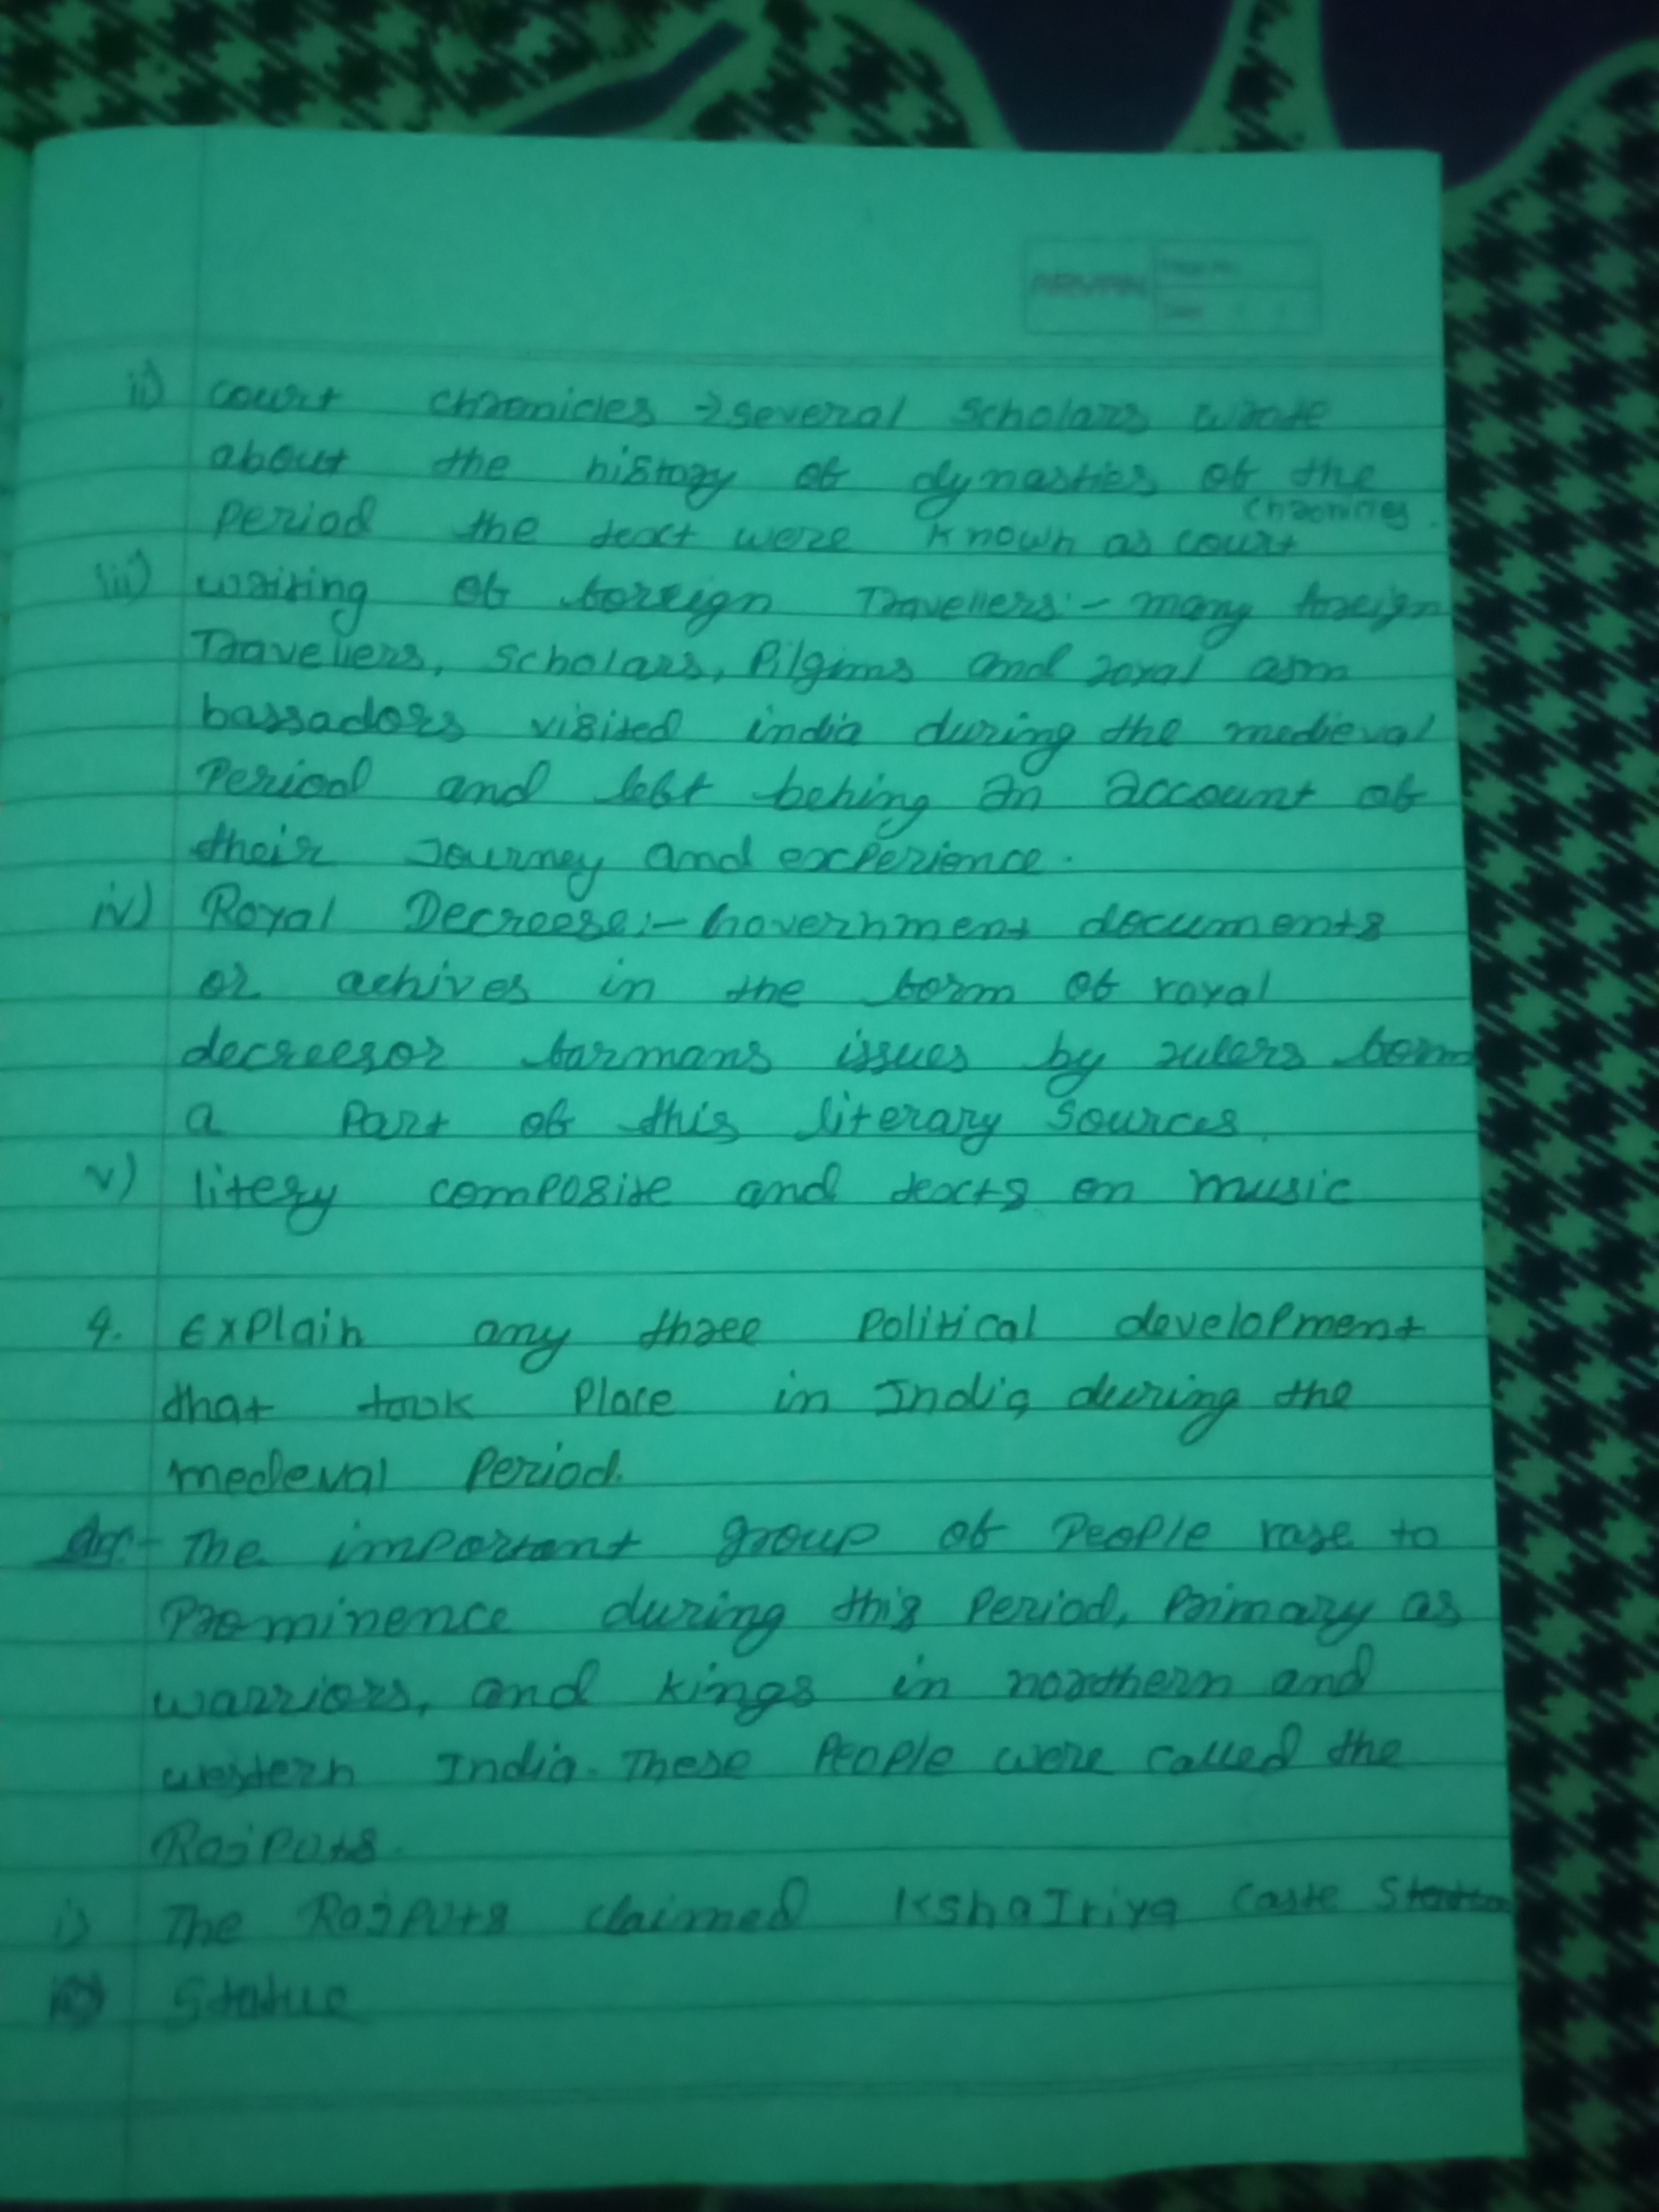 ii) court chronicles → several scholars wrote
about the history of dynasties of the
chronicles.
period the text were known as court
iii) writing of foreign Travellers:- many foreign
Travellers, scholars, Pilgims and royal am
bassadors visited india during the medieval
Period and left behing an account of
their Journey and experience.
iv) Royal Decreese:- Government documents
or achives in the form of royal
decreesor farmans issues by rulers form
a Part of this literary sources.
v) litery composite and texts on music
4. Explain any three Political development
that took Place in India during the
medeval Period.
Ans- The important group of People rase to
Prominence during this Period, Primary as
warriors, and kings in northern and
western India. These People were called the
Rajputs.
i) The Rajputs claimed Kshatriya caste
Statue